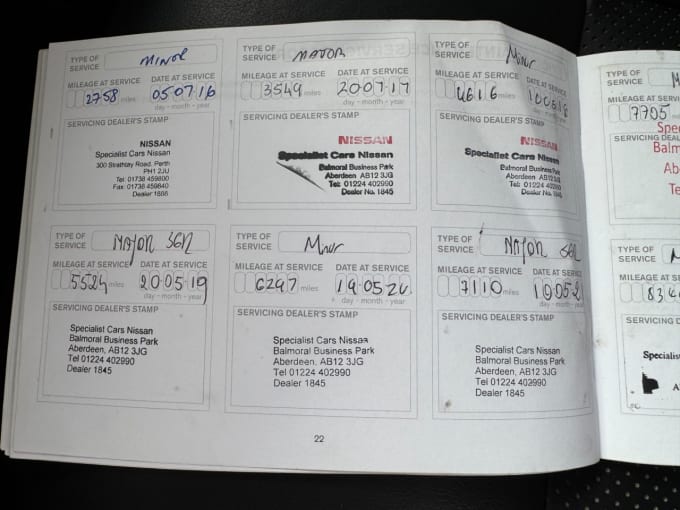 TYPE OF SERVICE MINOR
MILEAGE AT SERVICE DATE AT SERVICE
2758 miles 05 07 16
day - month - year
SERVICING DEALER'S STAMP
NISSAN
Specialist Cars Nissan
300 Strathtay Road, Perth
PH1 2JU
Tel: 01738 459800
Fax: 01738 459840
Dealer 1886
TYPE OF SERVICE MAJOR
MILEAGE AT SERVICE DATE AT SERVICE
3549 miles 20 07 17
day - month - year
SERVICING DEALER'S STAMP
NISSAN
Specialist Cars Nissan
Balmoral Business Park
Aberdeen AB12 3JG
Tel: 01224 402990
Dealer No. 1845
TYPE OF SERVICE Minor
MILEAGE AT SERVICE DATE AT SERVICE
4616 miles 10 06 18
day - month - year
SERVICING DEALER'S STAMP
NISSAN
Specialist Cars Nissan
Balmoral Business Park
Aberdeen AB12 3JG
Tel: 01224 402990
Dealer No. 1845
TYPE OF SERVICE MAJOR
MILEAGE AT SERVICE DATE AT SERVICE
5524 miles 20 05 19
day - month - year
SERVICING DEALER'S STAMP
Specialist Cars Nissan
Balmoral Business Park
Aberdeen, AB12 3JG
Tel 01224 402990
Dealer 1845
TYPE OF SERVICE Minor
MILEAGE AT SERVICE DATE AT SERVICE
6297 miles 19 05 20
day - month - year
SERVICING DEALER'S STAMP
Specialist Cars Nissan
Balmoral Business Park
Aberdeen, AB12 3JG
Tel 01224 402990
Dealer 1845
TYPE OF SERVICE MAJOR
MILEAGE AT SERVICE DATE AT SERVICE
7110 miles 10 05 2
day - month - year
SERVICING DEALER'S STAMP
Specialist Cars Nissan
Balmoral Business Park
Aberdeen, AB12 3JG
Tel 01224 402990
Dealer 1845
22
TYPE OF SERVICE M
MILEAGE AT SERVI
7705 m
SERVICING DEALE
Spe
Balm
Ab
Te
TYPE OF SERVICE
MILEAGE AT SERV
834
SERVICING D
Specialis
A